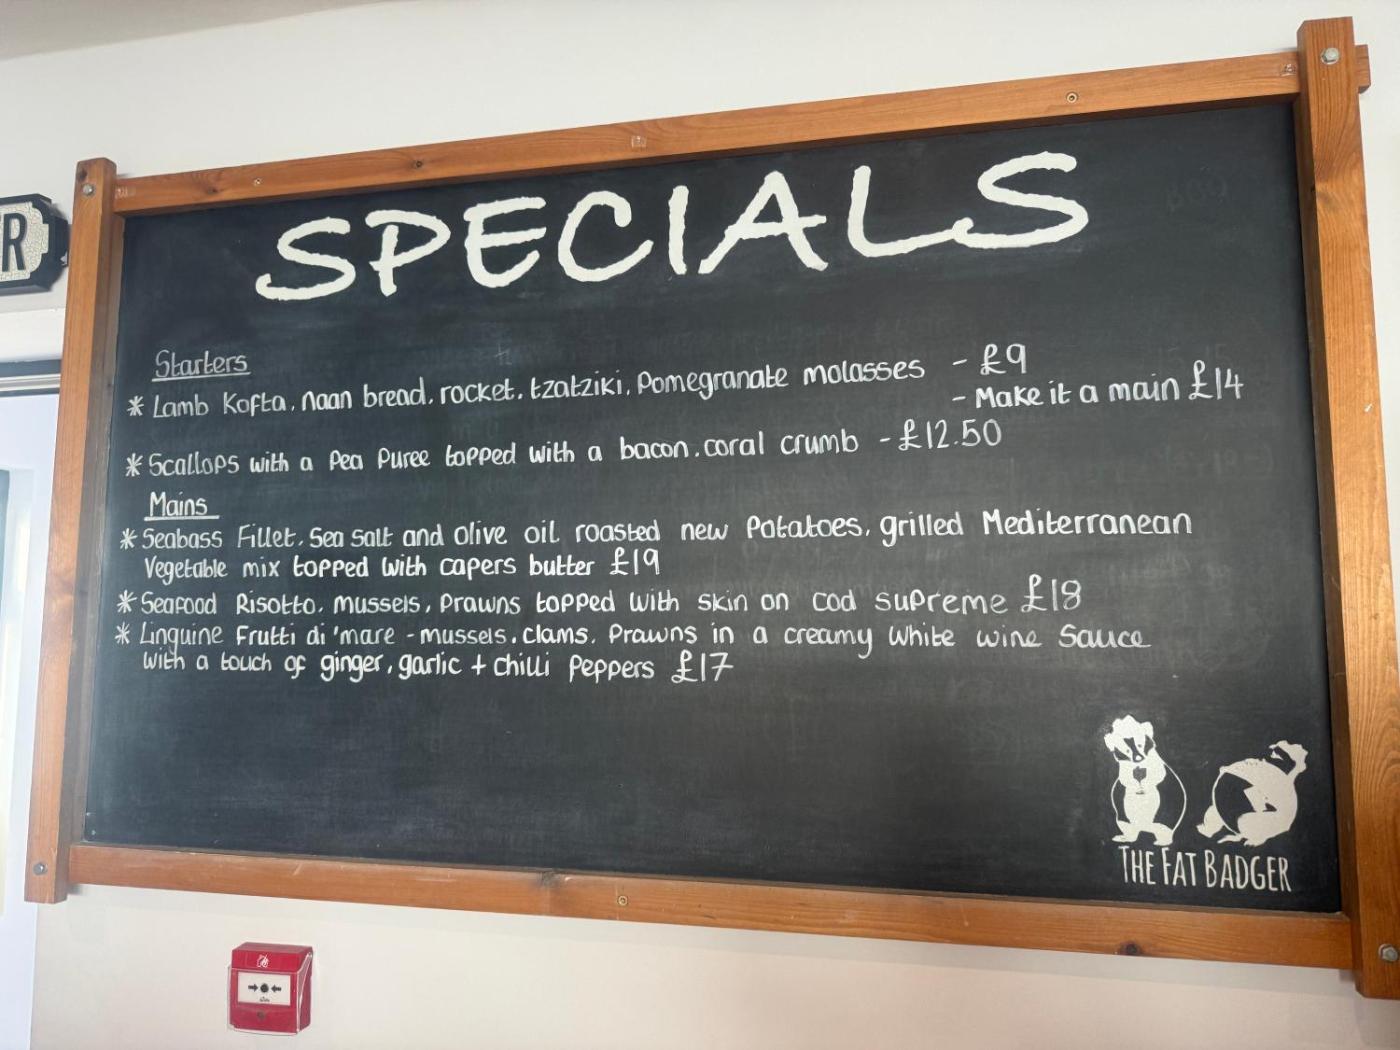 R
SPECIALS
Starters
* Lamb Kofta, naan bread, rocket, tzatziki, Pomegranate molasses - £9
- Make it a main £14
* Scallops with a Pea Puree topped with a bacon, coral crumb - £12.50
Mains
* Seabass Fillet, Sea Salt and Olive oil roasted new Potatoes, grilled Mediterranean
Vegetable mix topped with capers butter £19
* Seafood Risotto, mussels, Prawns topped with skin on cod supreme £18
* Linguine Frutti di 'mare - mussels, clams, Prawns in a creamy White wine Sauce
with a touch of ginger, garlic + chilli Peppers £17
THE FAT BADGER